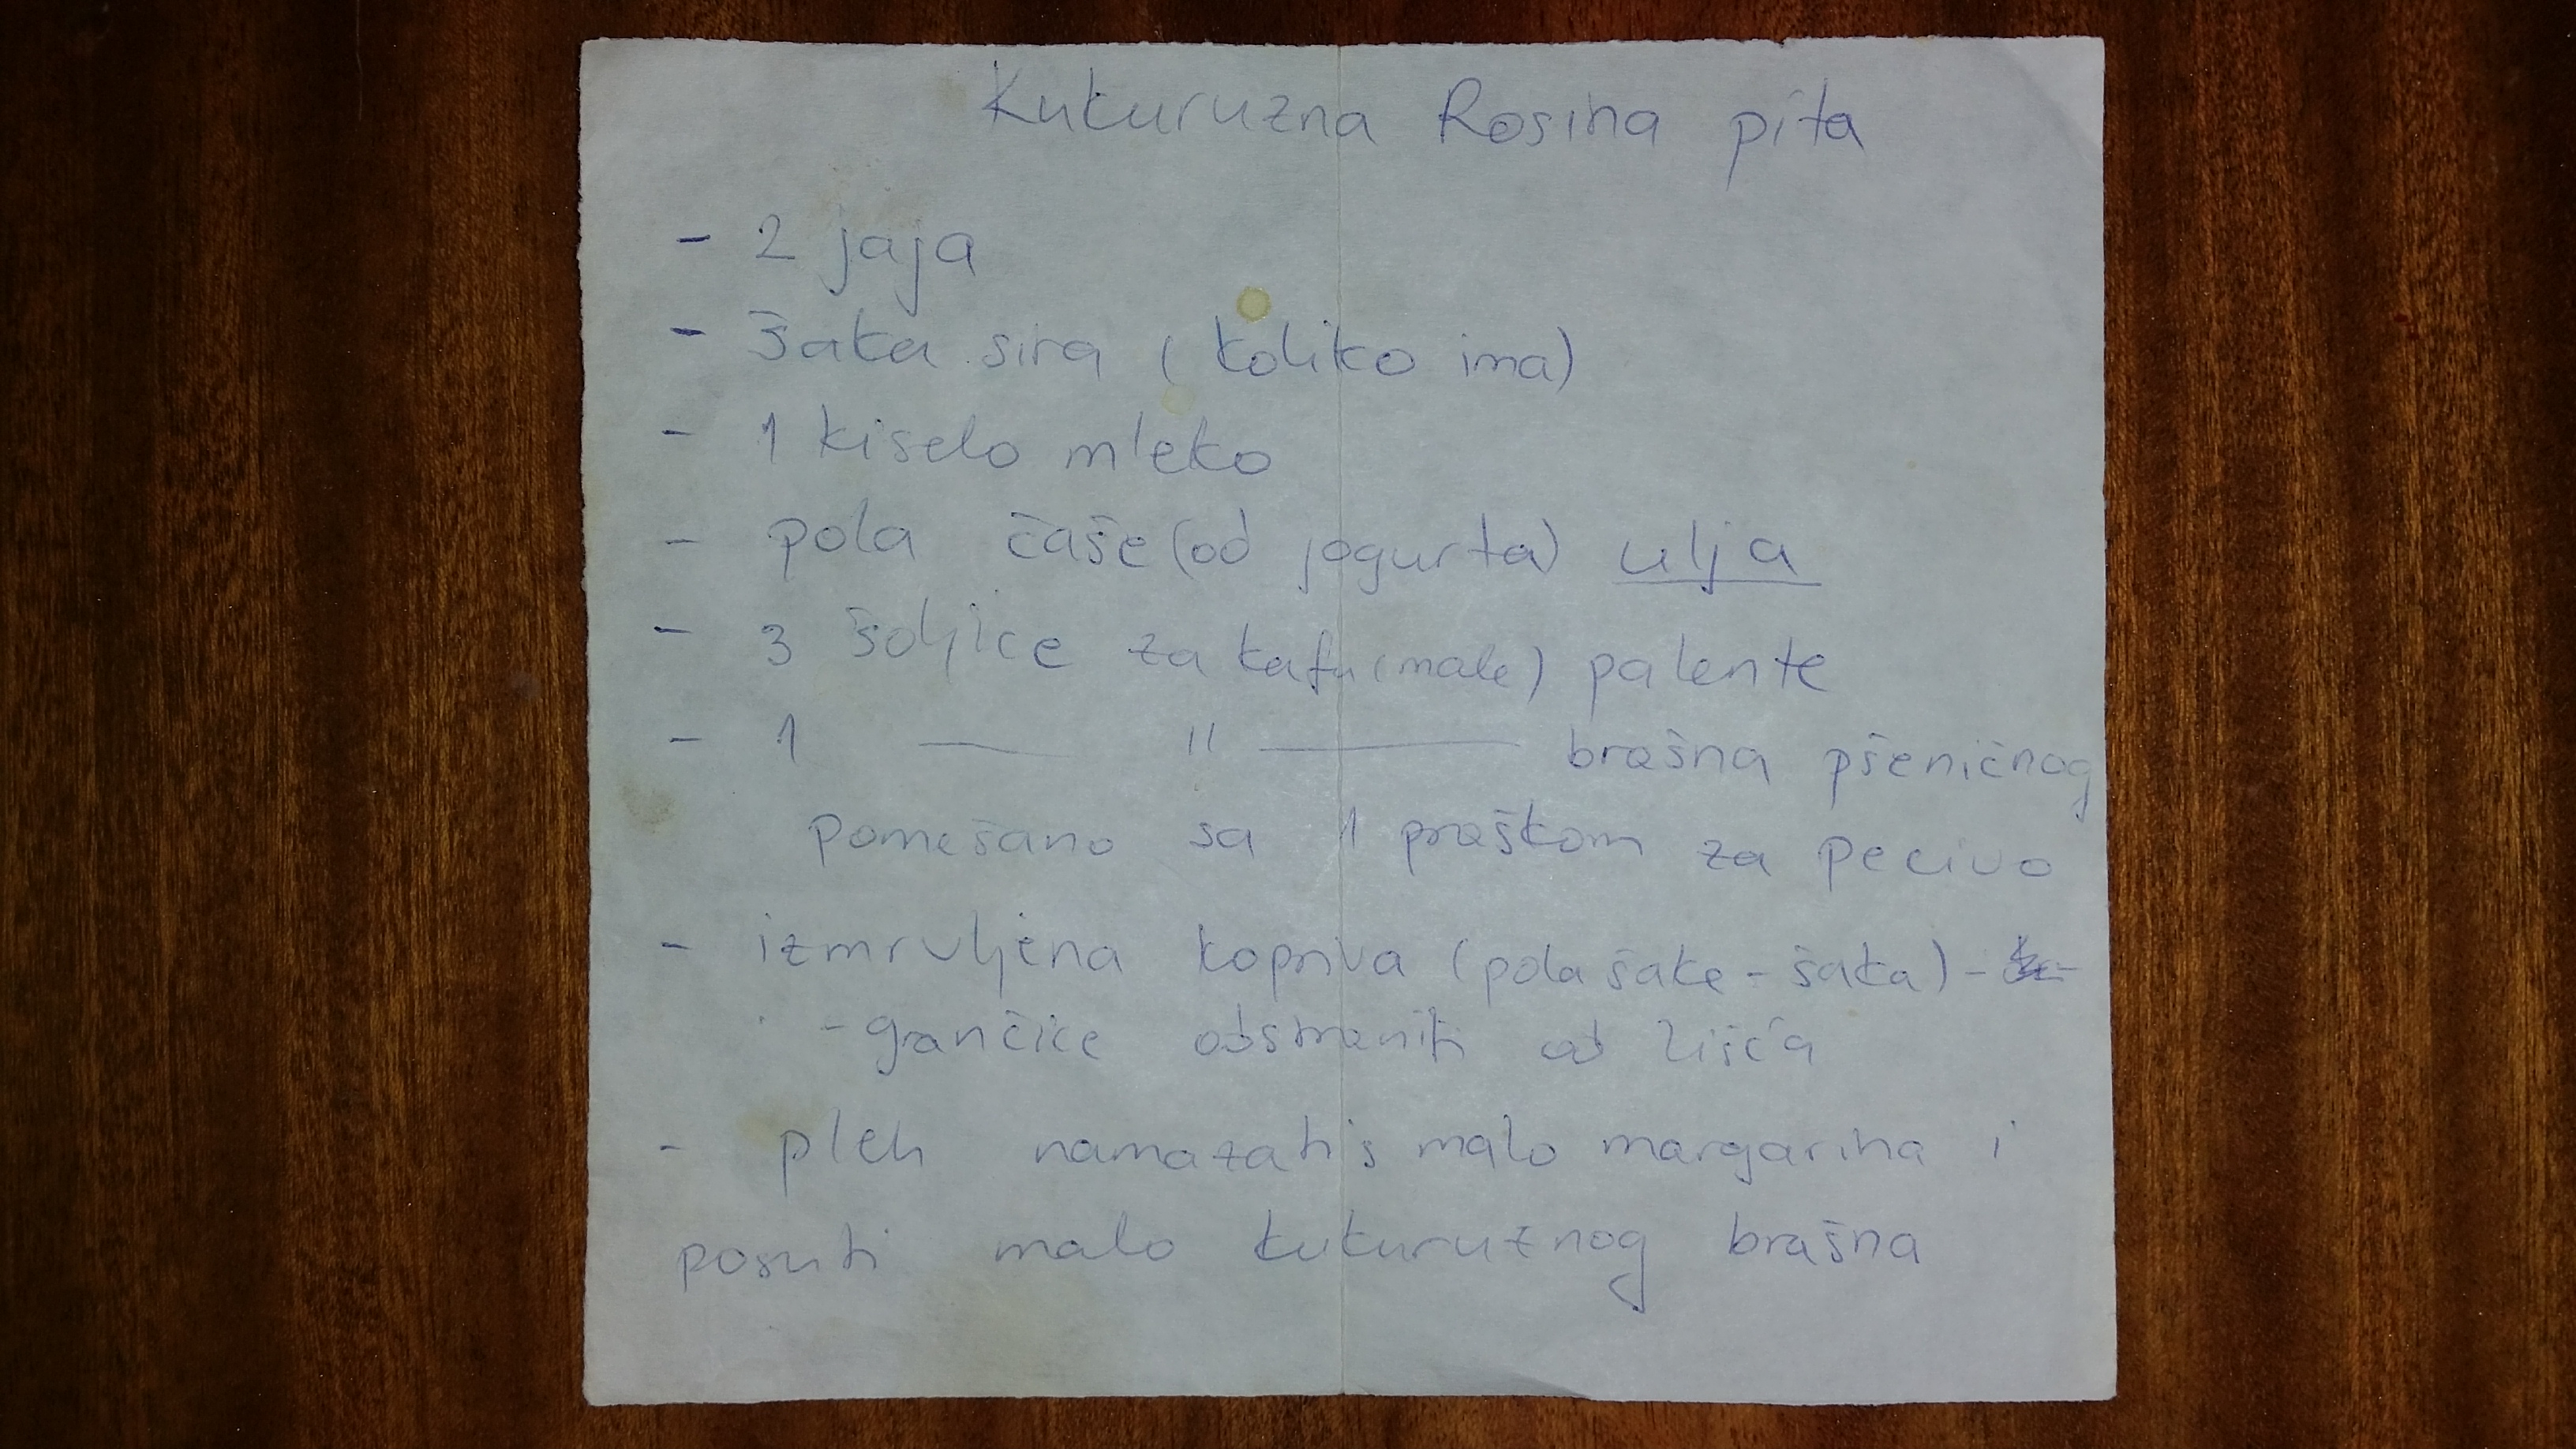 Kukuruzna Rosina pita
- 2 jaja
- šaka sira (koliko ima)
- 1 kiselo mleko
- pola čaše (od jogurta) ulja
- 3 šoljice za kafu (male) palente
- 1 — 11 — brašna pšeničnog
pomešano sa 1 praškom za pecivo
- izmrvljena kopriva (pola šake - šaka) -
- grančice odstraniti od lišća
- pleh namazati s malo margarina i
posuti malo kukuruznog brašna